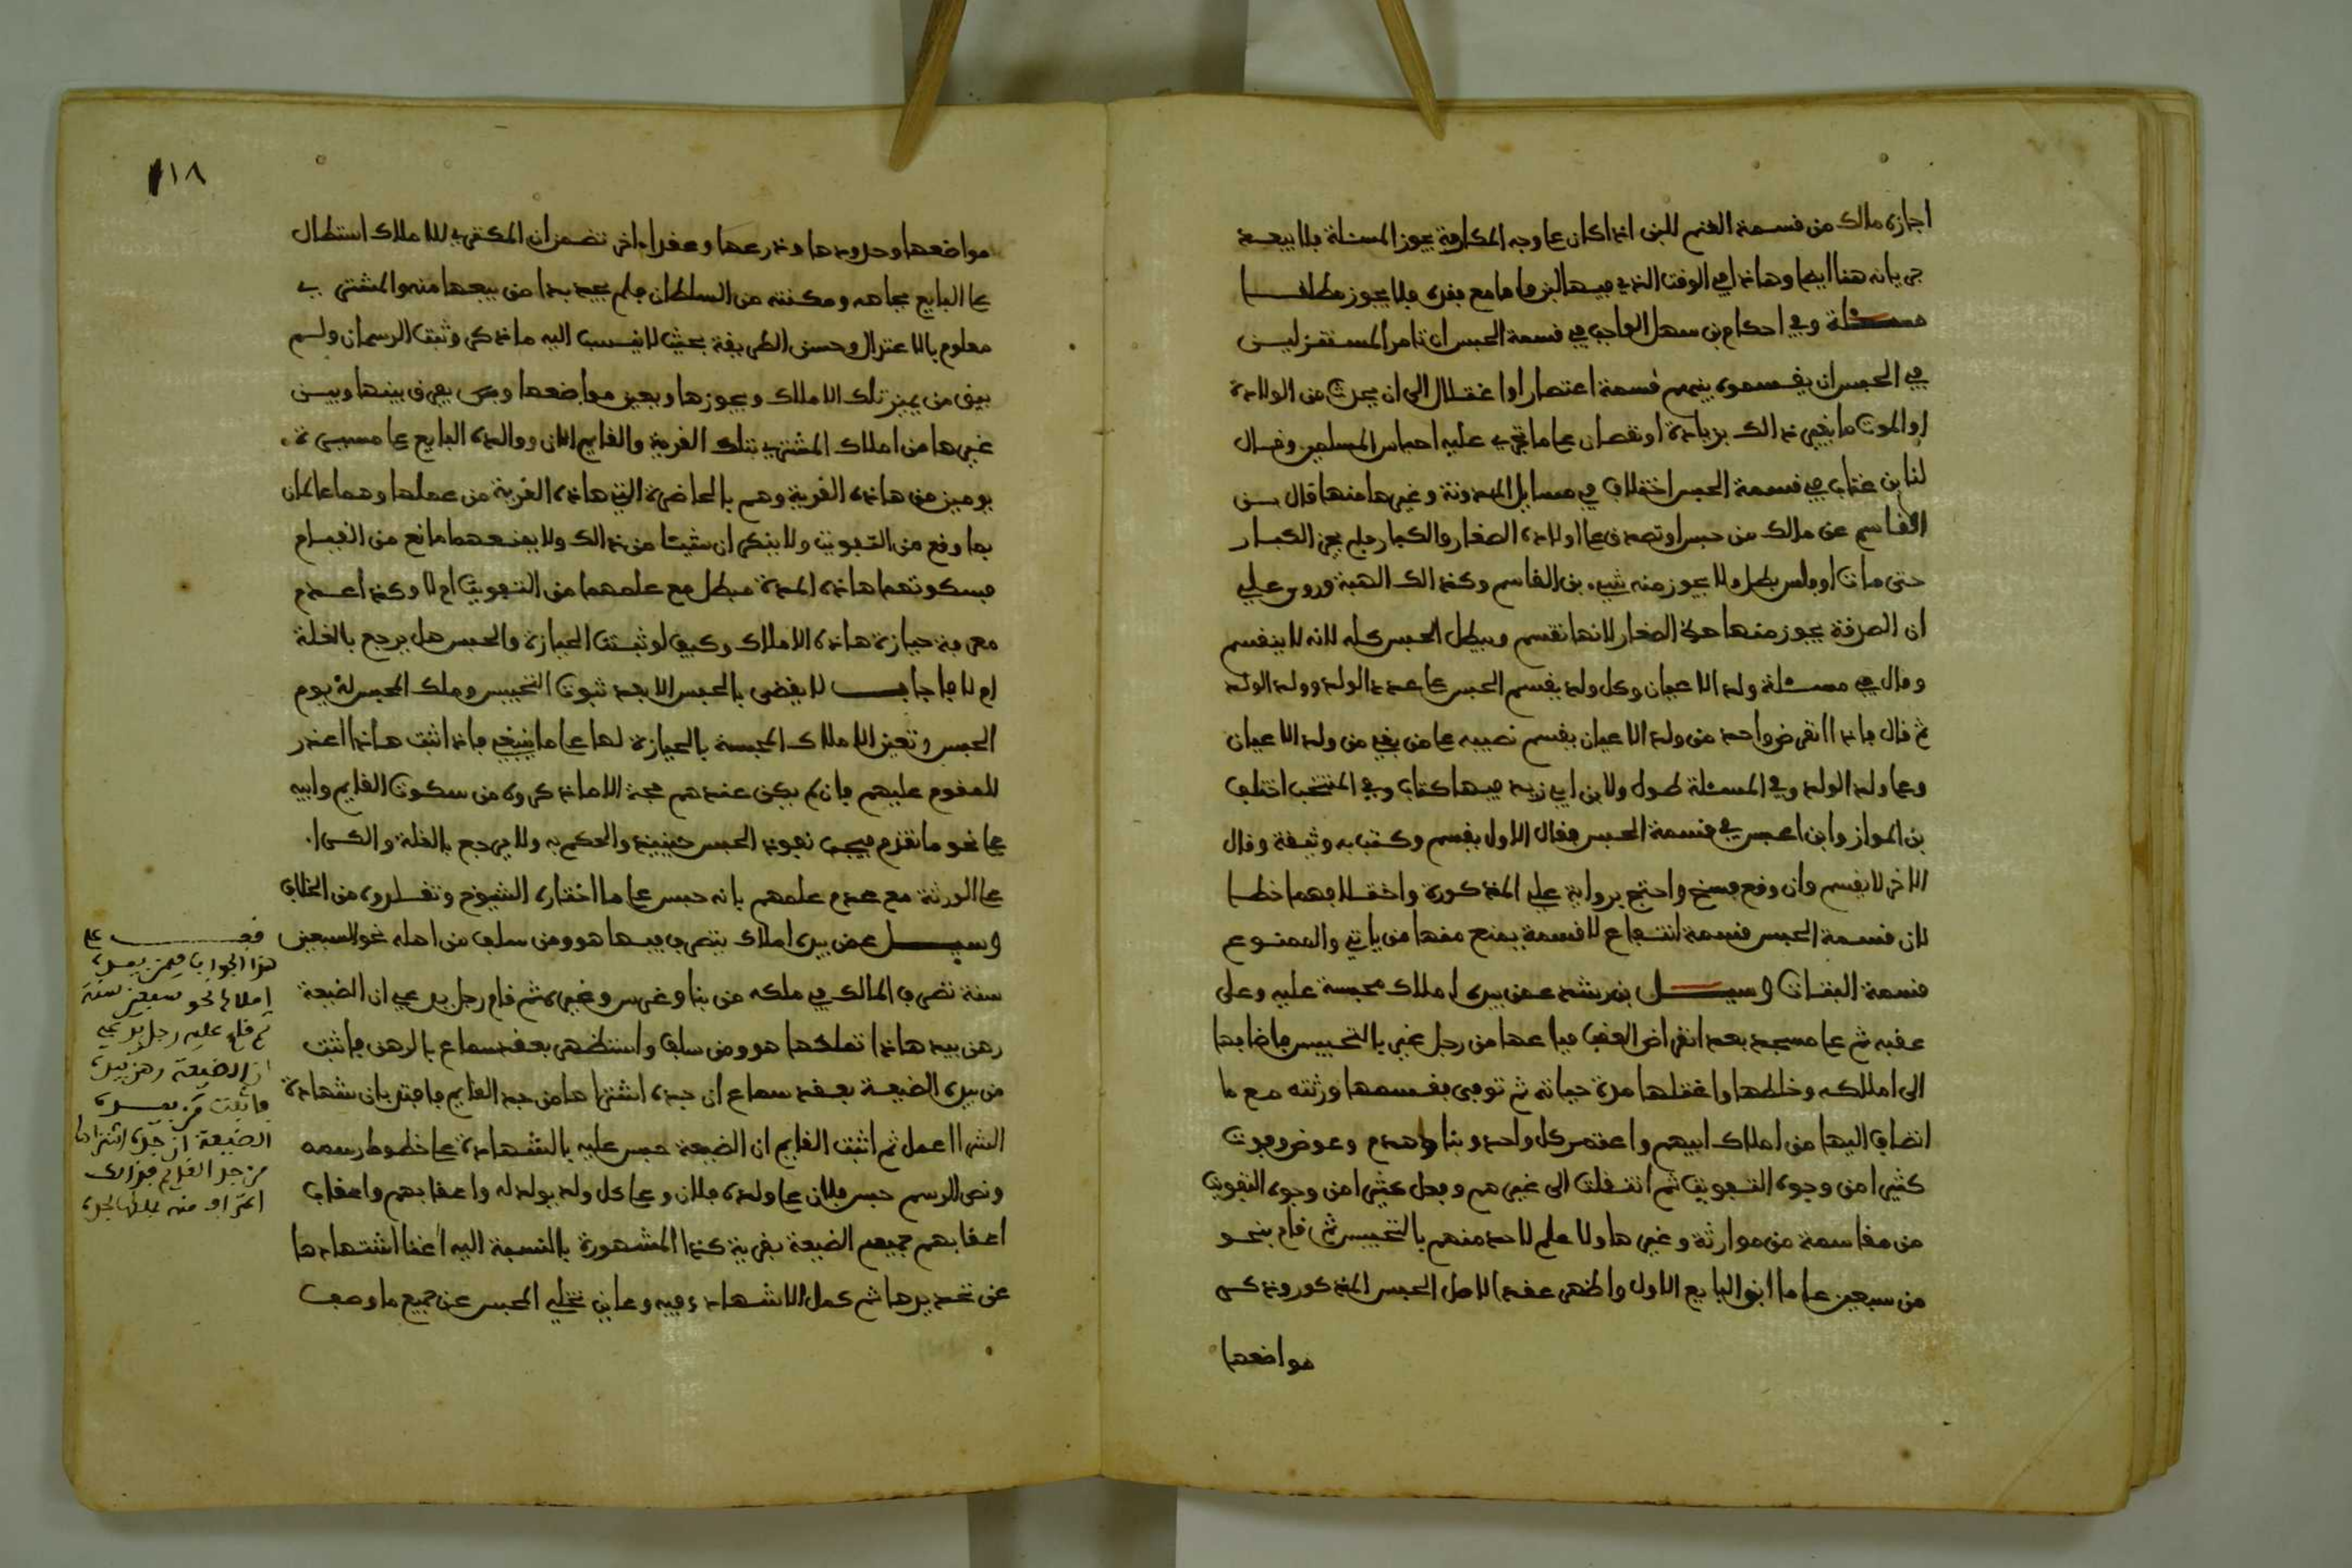 اجازه مالك من قسمة الغنم للبن اذا كان على وجه المكارمة يجوز المسئلة بلا بيعة
مسئلة وفي احكام بن سهل الواجب في قسمة الحبس ان تامر المستقرليس
في الحبس ان يقسموه بينهم قسمة اعتصار او اغتلال الى ان يحدث من الولادة
او الموت ما يغير ذالك بزيادة او نقصان على ما تجري عليه احباس المسلمين وقال
لنا بن عتاب في قسمة الحبس اختلاف في مسايل المدونة وغيرها منها قال بن
القاسم عن مالك من حبس او تصدق على اولاده الصغار والكبار فلم يحز الكبار
حتى مات او فلس بطل ولا يجوز منه شيء بن القاسم وكذالك الهبة وروى علي
ان الصدقة يجوز منها حوز الصغار لانها تقسم ويبطل الحبس كله لانه لا ينقسم
وقال في مسئلة ولد الاعيان وكل ولد يقسم الحبس على عدد الولد وولد الولد
ثم قال فاذا انقرض واحد من ولد الاعيان يقسم نصيبه على من بقي من ولد الاعيان
وعلى ولد الولد وفي المسئلة طول ولابن ابي زيد فيها كتاب وفي المنتخب اختلف
بن المواز وابن اعبس في قسمة الحبس فقال الاول يقسم وكتب به وثيقة وقال
الاخر لا يقسم وان وقع فسخ واحتج برواية علي المذكورة واختلافهما خطا
لان قسمة الحبس قسمة انتفاع لا قسمة يمنع منها من ياتي والممنوع
قسمة البتات وسيل بن رشد عمن بيده املاك محبسة عليه وعلى
عقبه ثم على مسجد بعد انقراض العقب فباعها من رجل غير بالتحبيس فاضافها
الى املاكه وخلطها واغتلها مدة حياته ثم توفى فقسمها ورثته مع ما
انضاف اليها من املاك ابيهم واعتمر كل واحد وبنا وهدم وعوض وفوت
كثيرا من وجوه التفويت ثم انتقلت الى غيرهم وفعل كثيرا من وجوه التفويت
من مقاسمة من موارثة وغيرها ولا علم لاحد منهم بالتحبيس ثم قام بنحو
من سبعين عاما ابن البايع الاول واظهر عقدا لاصل الحبس المذكور وذكر
مواضعها
١١٨
مواضعها وحدودها وذرعها وعقدا اخر تضمن ان المكتري للاملاك استطال
على البايع بجاهه ومكنته من السلطان فلم يجد بدا من بيعها منه والمشتري
معلوم بالاعتدال وحسن الطريقة بحيث لا ينسب اليه ما ذكر وثبت الرسمان ولم
يبق من يميز تلك الاملاك ويحوزها ويعين مواضعها ويفرق بينها وبين
غيرها من املاك المشتري بتلك القرية والقايم الان ووالده البايع على مسيرة
يومين من هاذه القرية وهم بالحاضرة التي هاذه القرية من عملها وهما عالمان
بما وقع من التفويت ولا ينكران شيئا من ذالك ولا يمنعهما مانع من القيام
فسكوتهما هاذه المدة مبطل مع علمهما من التفويت ام لا وكذا عدم
معرفة حيازة هاذه الاملاك وكيف لو ثبتت الحيازة والحبس هل يرجع بالغلة
ام لا فاجاب لا يقضى بالحبس الا بعد ثبوت التحبيس وملك المحبس له يوم
الحبس وتعين الاملاك المحبسة بالحيازة لها على ما ينبغي فاذا اثبت هاذا اعذر
للمقوم عليهم فان لم يكن عندهم حجة الا ما ذكروه من سكوت القايم وابيه
على نحو ما تقدم فيجب نفوذ الحبس حينيذ والحكم به ولا يرجع بالغلة والكرا
على الورثة مع عدم علمهم بانه حبس على ما اختاره الشيوخ وتقلدوه من الخلاف
وسيل عمن بيده املاك يتصرف فيها هو ومن سلف من اهله نحو السبعين
سنة تصرف المالك في ملكه من بنا وغرس وغيره ثم قام رجل يدعي ان الضيعة
رهن بيد هاذا تملكها هو ومن سلف واستظهر بعقد سماع بالرهن فاثبت
من بيده الضيعة بعقد سماع ان جده اشتراها من جد القايم فافتي بان شهادة
الشرا اعمل ثم اثبت القايم ان الضيعة حبس عليه بالشهادة على خطوط رسمه
ونص الرسم حبس فلان على ولده فلان وعلى كل ولد يولد له واعقابهم واعقاب
اعقابهم جميع الضيعة بقرية كذا المشهورة بالنسبة اليه اغنا اشتهارها
عن تحديدها ثم كمل الاشهاد وفيه وعاين تخلي المحبس عن جميع ما وصف
قف على
هذا الجواب فيمن بيده
املاك نحو سبعين سنة
ثم قام عليه رجل يدعي
ان الضيعة رهن بيده
فاثبت من بيده
الضيعة ان جده اشتراها
من جد القايم